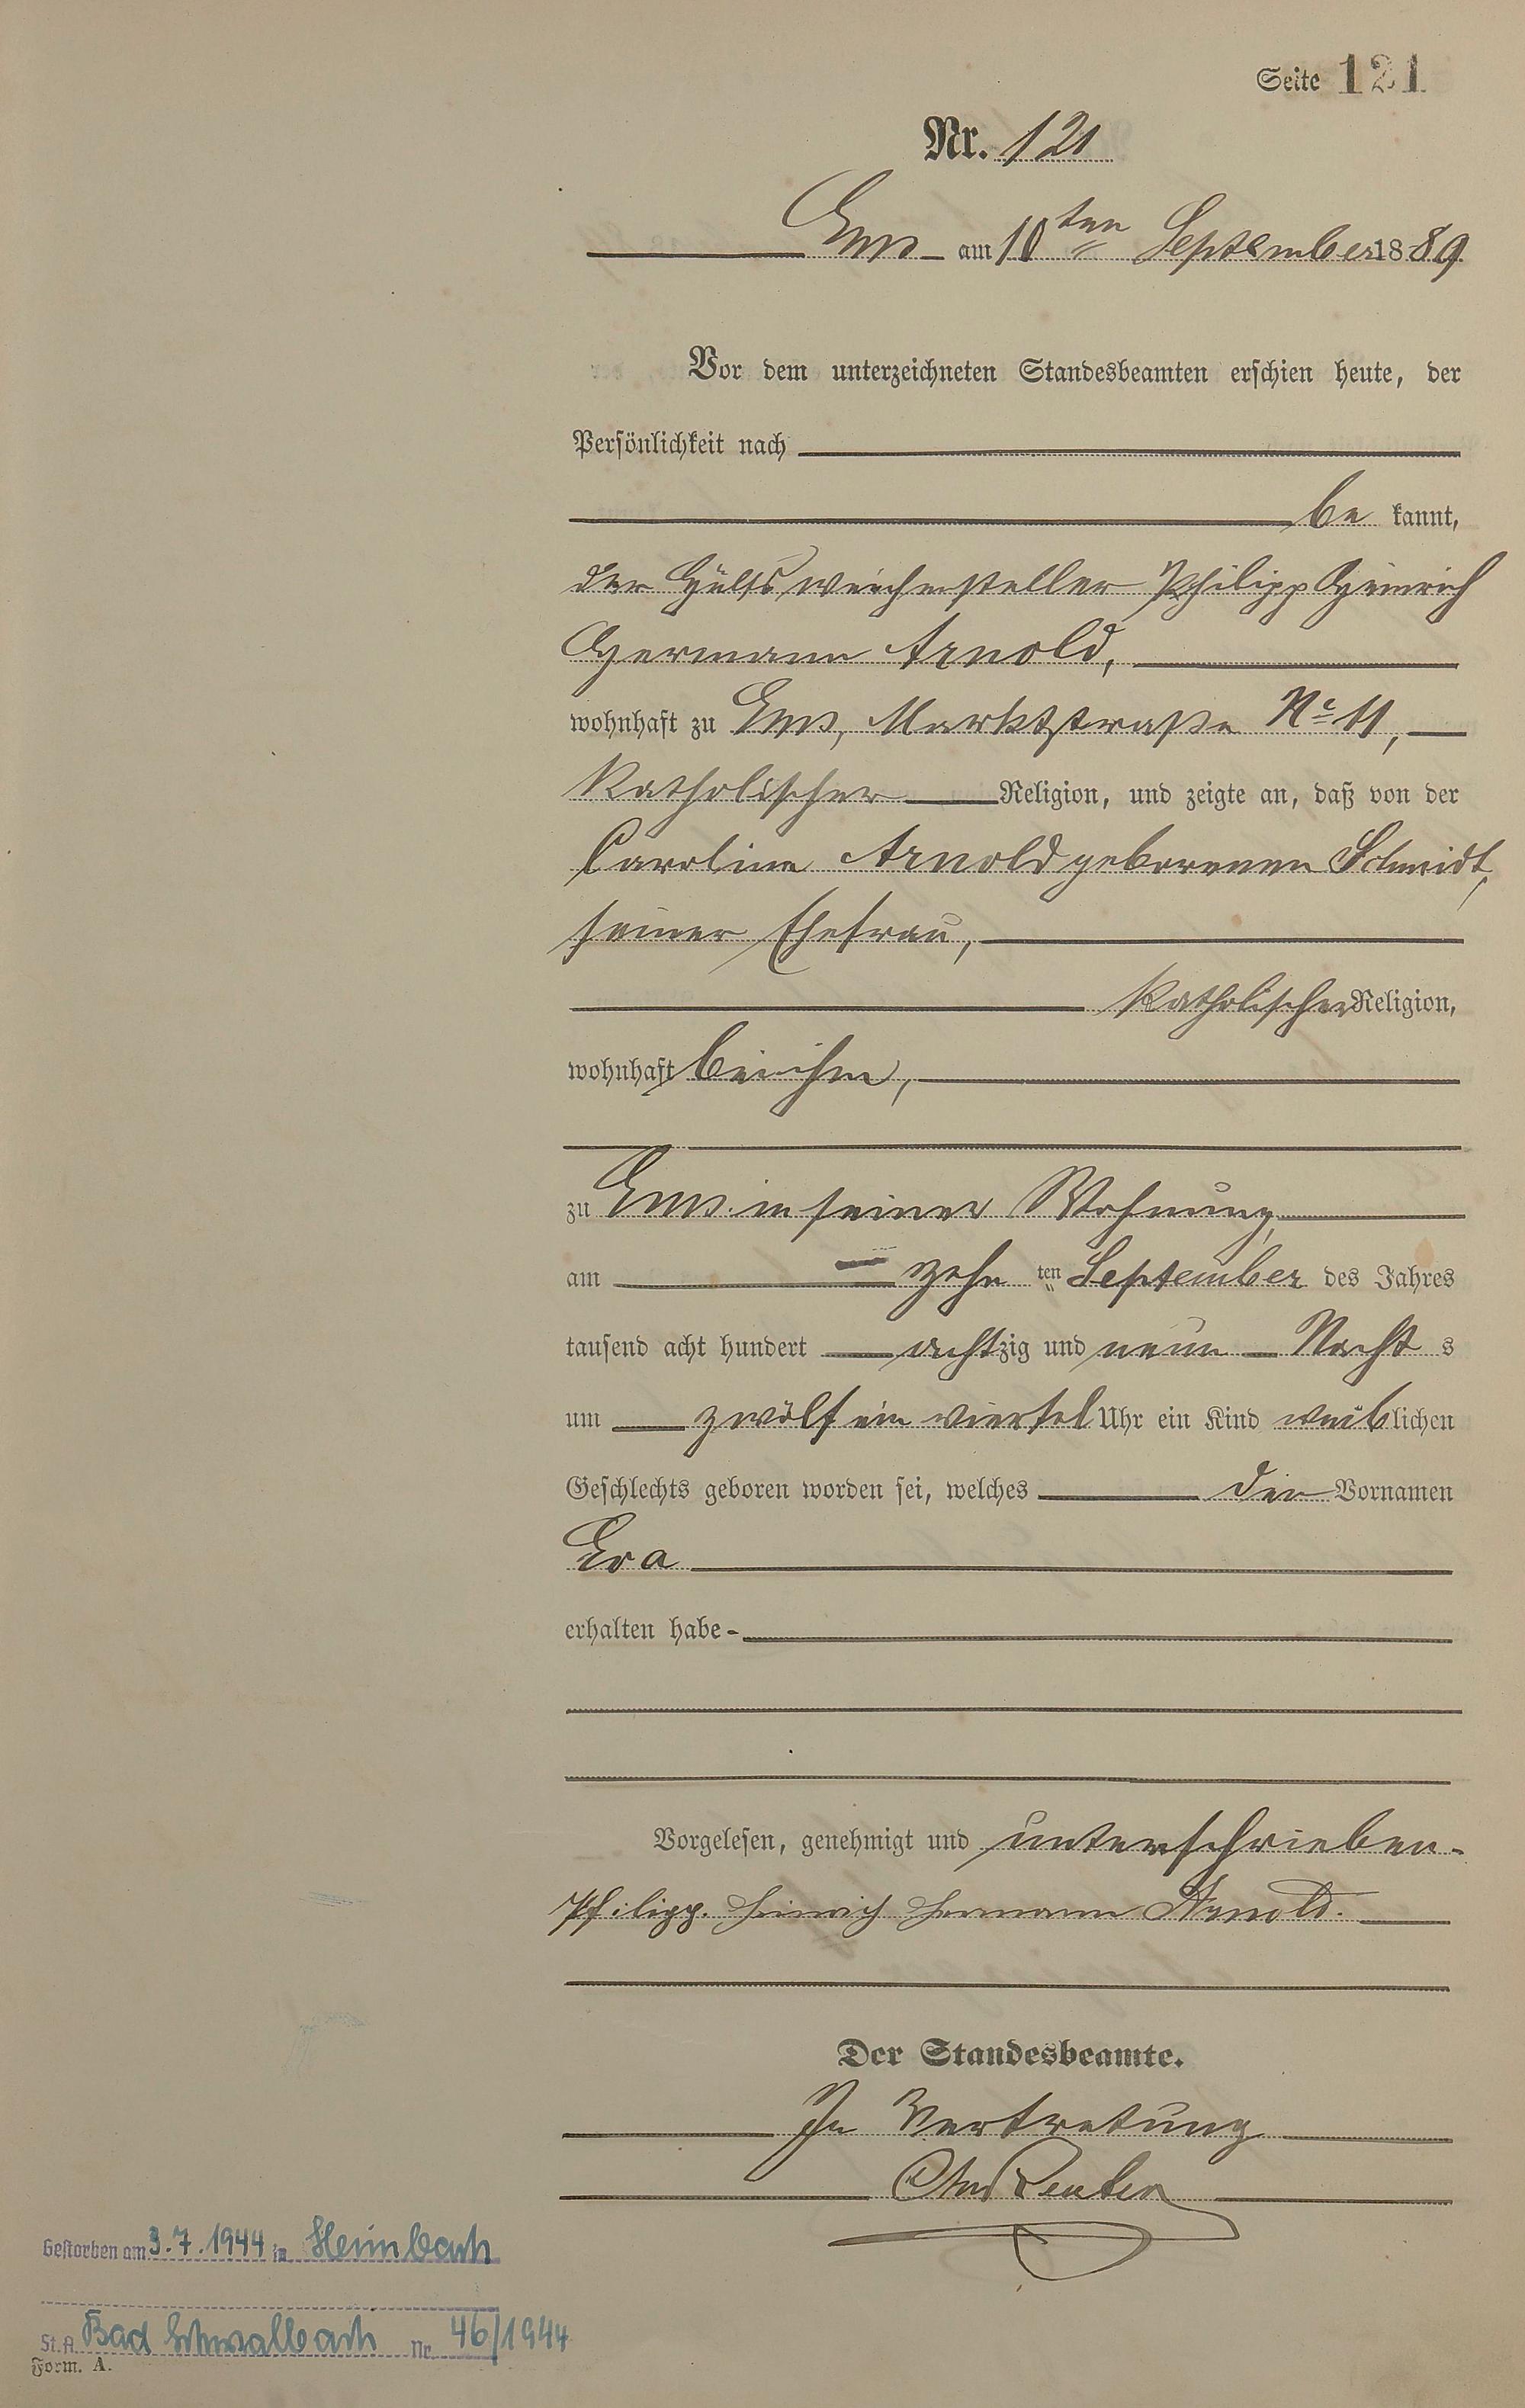 Seite 121
Nr. 121
Ems am 10ten September 1889.
Vor dem unterzeichneten Standesbeamten erschien heute, der
Persönlichkeit nach
be kannt,
der Hülfsweichensteller Philipp Heinrich
Hermann Arnold,
wohnhaft zu Ems, Marktstraße No 11,
katholischer Religion, und zeigte an, daß von der
Caroline Arnold geborenen Schmidt,
seiner Ehefrau,
katholischer Religion,
wohnhaft bei ihm,
zu Ems in seiner Wohnung,
am zehn ten September des Jahres
tausend acht hundert achtzig und neun Nacht s
um zwölf ein viertel Uhr ein Kind weiblichen
Geschlechts geboren worden sei, welches den Vornamen
Eva
erhalten habe
Vorgelesen, genehmigt und unterschrieben.
Philipp. Heinrich Hermann Arnold.
Der Standesbeamte.
In Vertretung
Reuter
Gestorben am 3.7.1944 in Heimbach
St.A. Bad Schwalbach Nr. 46/1944
Form. A.